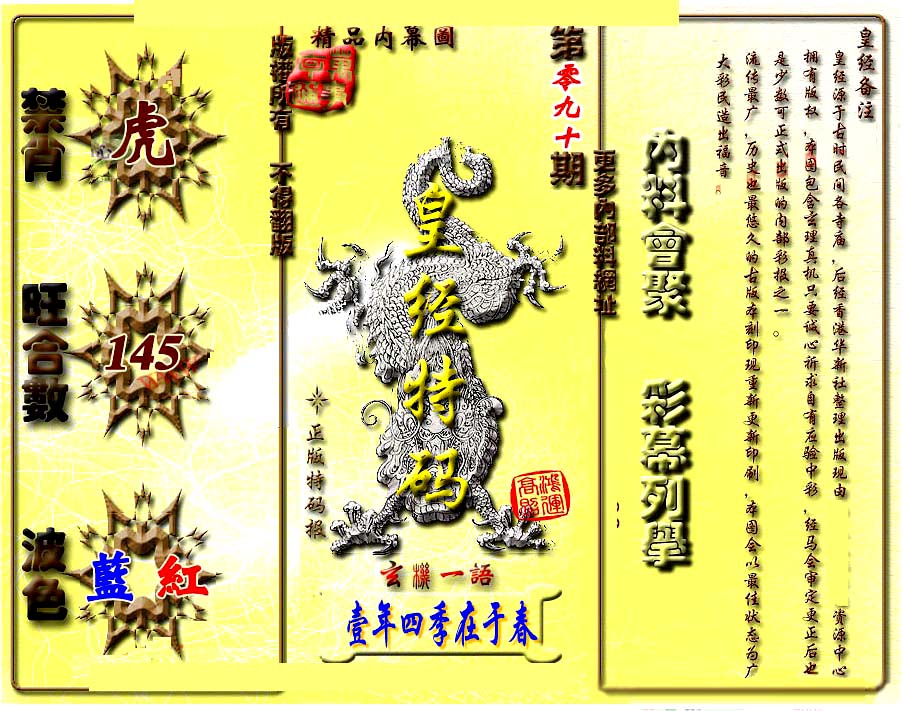 皇经备注
皇经源于古时民间各寺庙，后经香港华新社整理出版现由
资源中心
拥有版权，本图包含玄理真机只要诚心祈求自有应验中彩，经马会审定更正后也
是少数可正式出版的内部彩报之一。
流传最广，历史也最悠久的古版本刻印现重新更新印刷，本图会以最佳状态为广
大彩民造出福音
内料會聚
彩幕列舉
更多內部料網址
第零九十期
精品内幕圖
版權所有
不得翻版
皇经特码
正版特码报
鴻運
高照
玄機一語
壹年四季在于春
禁肖
虎
旺合數
145
波色
藍
紅